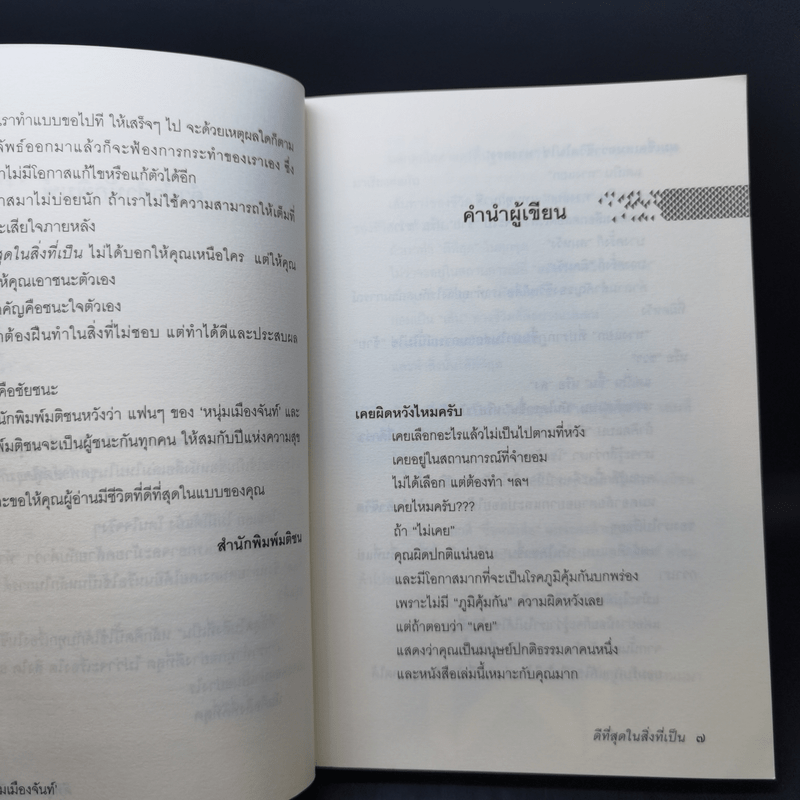 เราทำแบบขอไปที ให้เสร็จๆ ไป จะด้วยเหตุผลใดก็ตาม
ลัพธ์ออกมาแล้วก็จะฟ้องการกระทำของเราเอง ซึ่ง
าไม่มีโอกาสแก้ไขหรือแก้ตัวได้อีก
าสมาไม่บ่อยนัก ถ้าเราไม่ใช้ความสามารถให้เต็มที่
ะเสียใจภายหลัง
สุดในสิ่งที่เป็น ไม่ได้บอกให้คุณเหนือใคร แต่ให้คุณ
ห้คุณเอาชนะตัวเอง
คัญคือชนะใจตัวเอง
าต้องฝืนทำในสิ่งที่ไม่ชอบ แต่ทำได้ดีและประสบผล
คือชัยชนะ
นักพิมพ์มติชนหวังว่า แฟนๆ ของ 'หนุ่มเมืองจันท์' และ
พ์มติชนจะเป็นผู้ชนะกันทุกคน ให้สมกับปีแห่งความสุข
ะขอให้คุณผู้อ่านมีชีวิตที่ดีที่สุดในแบบของคุณ
สำนักพิมพ์มติชน
มเมืองจันท์'
คำนำผู้เขียน
เคยผิดหวังไหมครับ
เคยเลือกอะไรแล้วไม่เป็นไปตามที่หวัง
เคยอยู่ในสถานการณ์ที่จำยอม
ไม่ได้เลือก แต่ต้องทำ ฯลฯ
เคยไหมครับ???
ถ้า "ไม่เคย"
คุณผิดปกติแน่นอน
และมีโอกาสมากที่จะเป็นโรคภูมิคุ้มกันบกพร่อง
เพราะไม่มี "ภูมิคุ้มกัน" ความผิดหวังเลย
แต่ถ้าตอบว่า "เคย"
แสดงว่าคุณเป็นมนุษย์ปกติธรรมดาคนหนึ่ง
และหนังสือเล่มนี้เหมาะกับคุณมาก
ดีที่สุดในสิ่งที่เป็น ๗